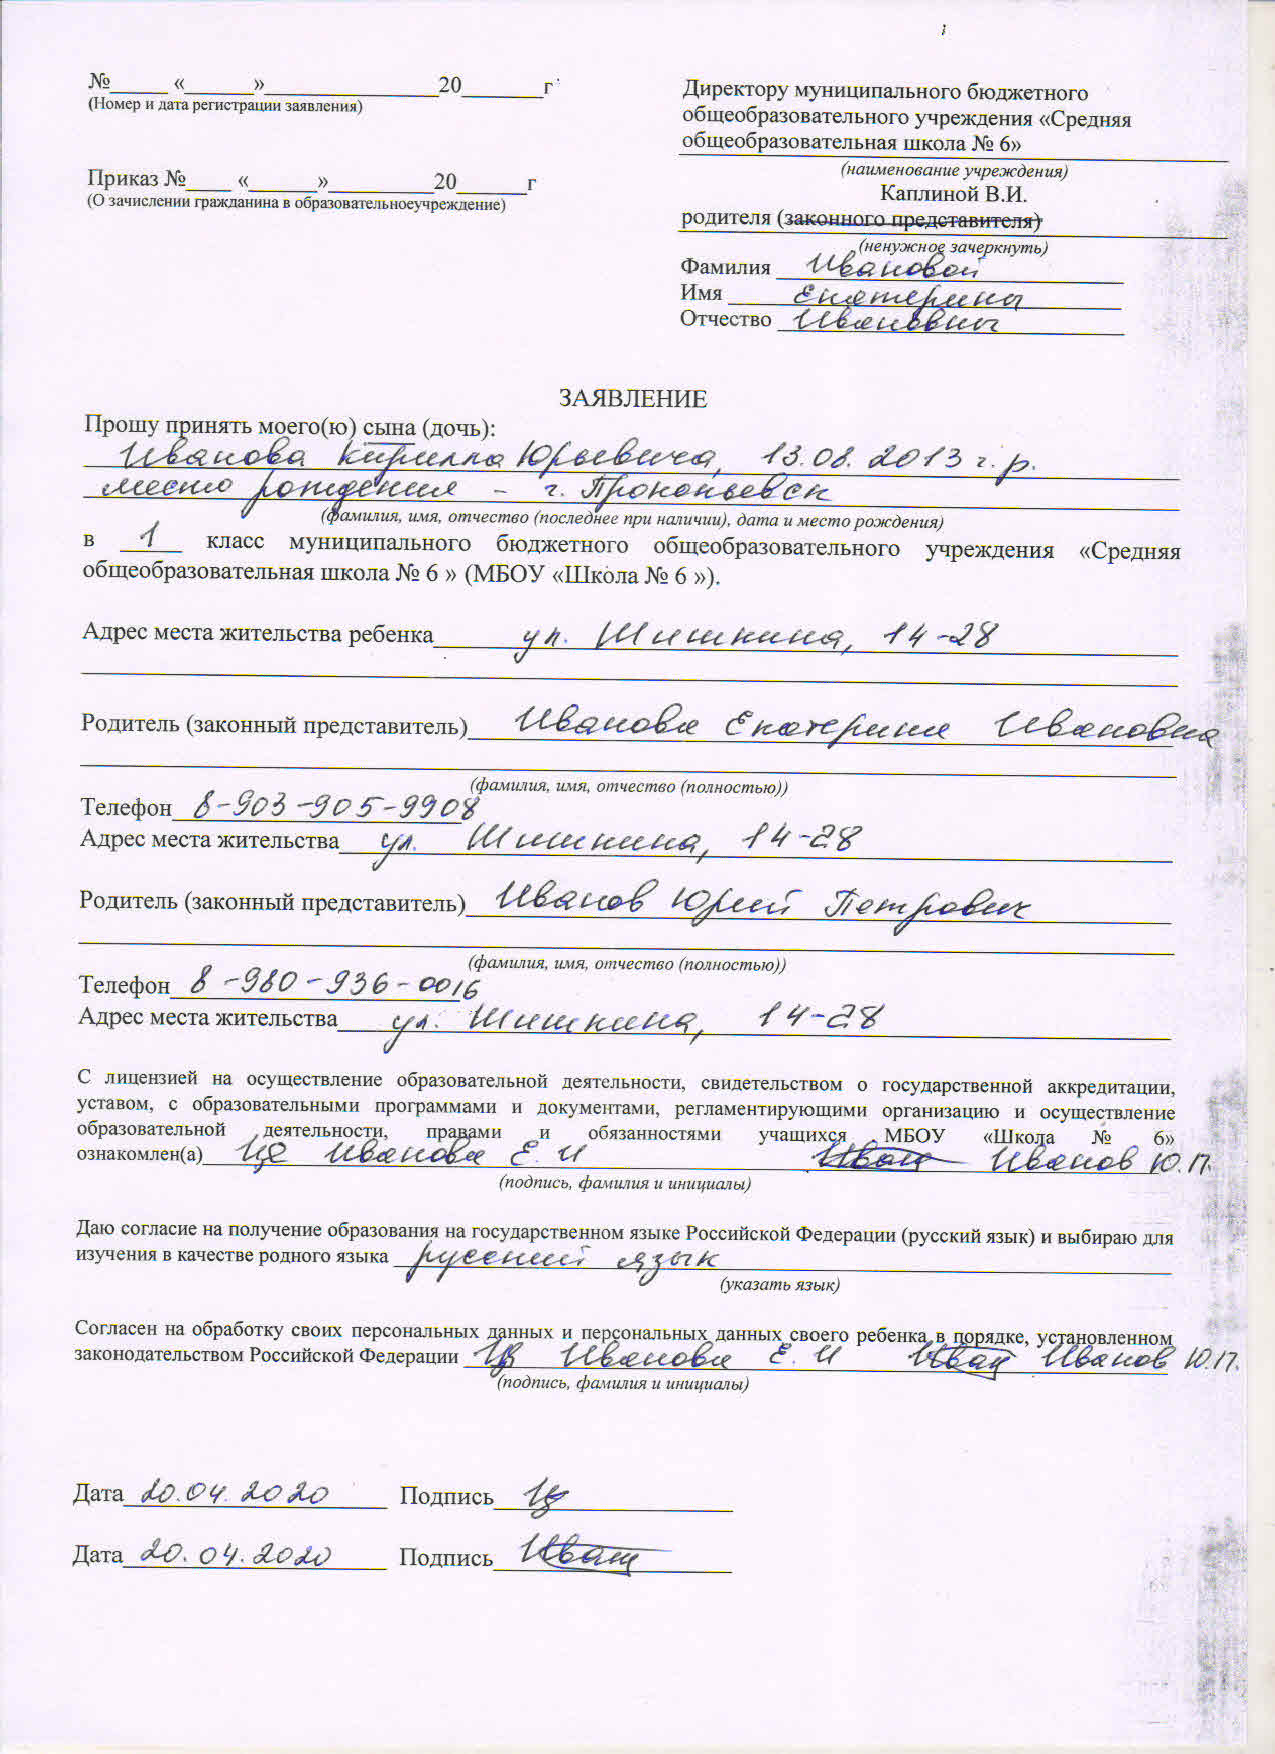 №_____ «______»_______________20_______г
(Номер и дата регистрации заявления)
Приказ №____ «______»_________20______г
(О зачислении гражданина в образовательноеучреждение)
Директору муниципального бюджетного
общеобразовательного учреждения «Средняя
общеобразовательная школа № 6»
(наименование учреждения)
Каплиной В.И.
родителя (законного представителя)
(ненужное зачеркнуть)
Фамилия Ивановой
Имя Екатерины
Отчество Ивановны
ЗАЯВЛЕНИЕ
Прошу принять моего(ю) сына (дочь):
Иванова Кирилла Юрьевича, 13.08.2013 г.р.
место рождения - г. Прокопьевск
(фамилия, имя, отчество (последнее при наличии), дата и место рождения)
в 1 класс муниципального бюджетного общеобразовательного учреждения «Средняя
общеобразовательная школа № 6 » (МБОУ «Школа № 6 »).
Адрес места жительства ребенка ул. Шишкина, 14-28
Родитель (законный представитель) Иванова Екатерина Ивановна
(фамилия, имя, отчество (полностью))
Телефон 8-903-905-9908
Адрес места жительства ул. Шишкина, 14-28
Родитель (законный представитель) Иванов Юрий Петрович
(фамилия, имя, отчество (полностью))
Телефон 8-980-936-0016
Адрес места жительства ул. Шишкина, 14-28
С лицензией на осуществление образовательной деятельности, свидетельством о государственной аккредитации,
уставом, с образовательными программами и документами, регламентирующими организацию и осуществление
образовательной деятельности, правами и обязанностями учащихся МБОУ «Школа № 6»
ознакомлен(а) Иванова Е. И Иванов Ю.П.
(подпись, фамилия и инициалы)
Даю согласие на получение образования на государственном языке Российской Федерации (русский язык) и выбираю для
изучения в качестве родного языка русский язык
(указать язык)
Согласен на обработку своих персональных данных и персональных данных своего ребенка в порядке, установленном
законодательством Российской Федерации Иванова Е. И Иванов Ю.П.
(подпись, фамилия и инициалы)
Дата 20.04.2020 Подпись
Дата 20.04.2020 Подпись